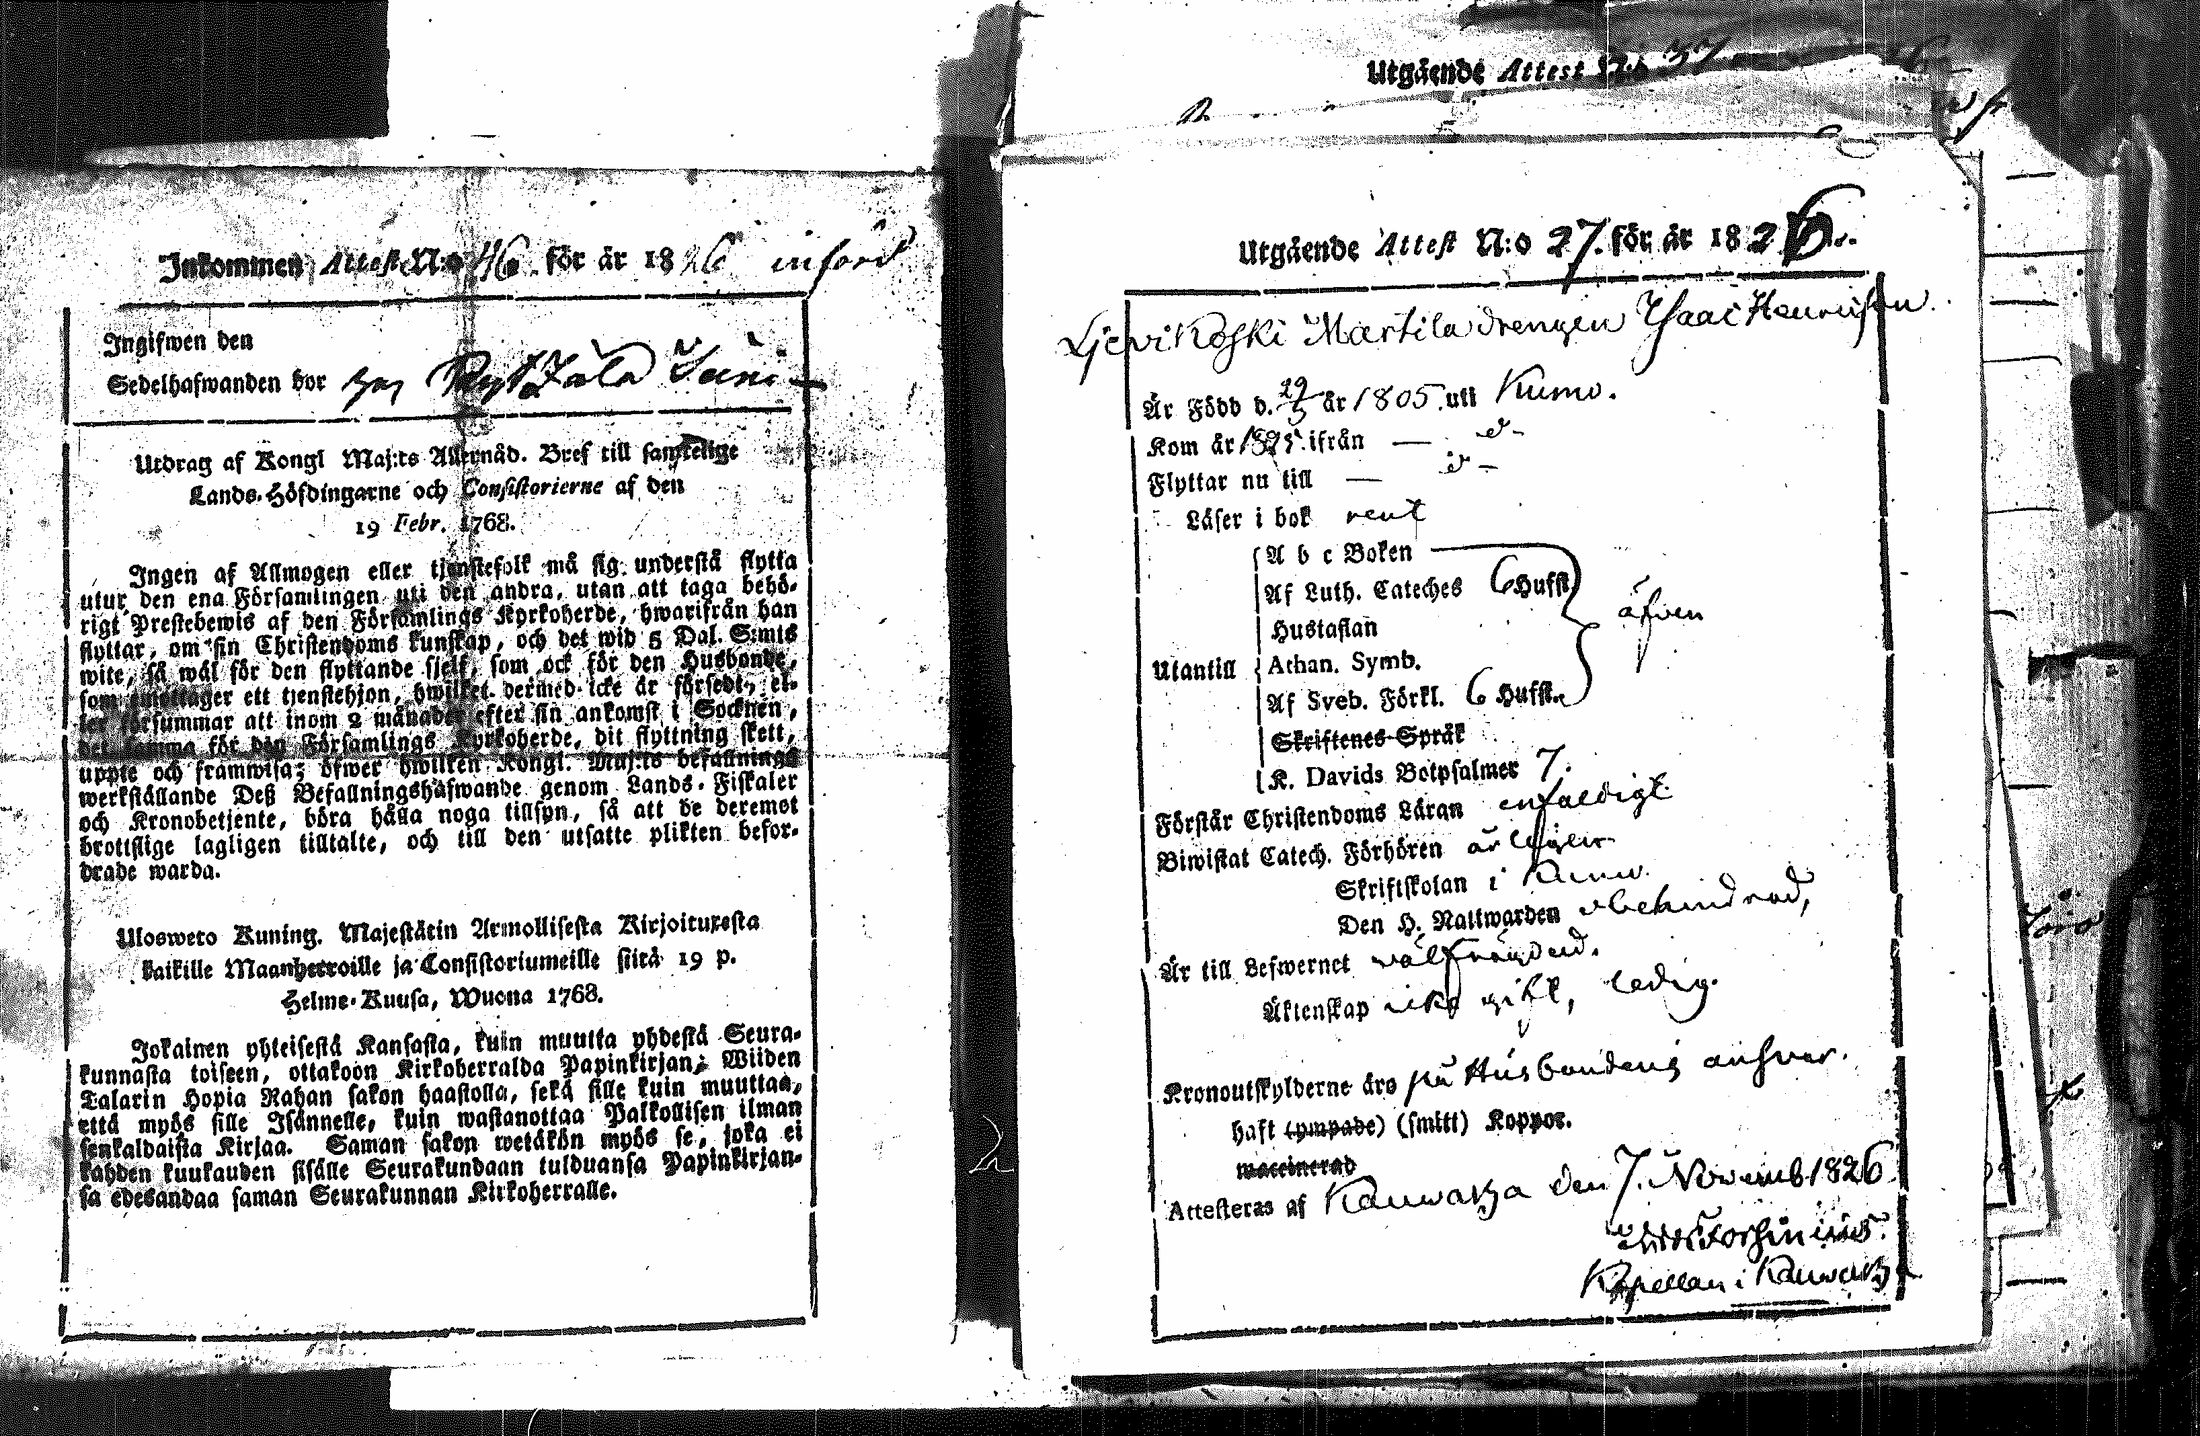 Inkommen Attest N:o 46 för år 1826 införd
Ingifwen den
Sedelhafwanden bor
Utdrag af Kongl Maj:ts Allernåd. Bref till samtelige
Lands-Höfdingarne och Consistorierne af den
19 Febr. 1768.
Ingen af Allmogen eller tjenstefolk må sig understå flytta
utur den ena Församlingen uti den andra, utan att taga behö-
rigt Prestebewis af den Församlings Kyrkoherde, hwarifrån han
flyttar, om sin Christendoms kunskap, och det wid 5 Dal. S:mts
wite, så wäl för den flyttande sjelf, som ock för den Husbonde,
som emottager ett tjenstehjon, hwilket dermed icke är försedt, el-
ler försummar att inom 2 månader efter sin ankomst i Socknen,
det samma för den Församlings Kyrkoherde, dit flyttning skett,
uppte och framwisa; öfwer hwilken Kongl. Maj:ts befallnings
werkställande Deß Befallningshafwande genom Lands-Fiskaler
och Kronobetjente, böra hålla noga tillsyn, så att de deremot
brottslige lagligen tilltalte, och till den utsatte plikten befor-
drade warda.
Ulosweto Kuning. Majestätin Armollisesta Kirjoituxesta
kaikille Maanherroille ja Consistoriumeille siitä 19 p.
Helme-Kuusa, Wuona 1768.
Jokainen yhteisestä Kansasta, kuin muutta yhdestä Seura-
kunnasta toiseen, ottakoon Kirkoherralda Papinkirjan; Wiiden
Talarin Hopia Rahan sakon haastolla, sekä sille kuin muuttaa,
että myös sille Isännelle, kuin wastanottaa Palkollisen ilman
senkaldaista Kirjaa. Saman sakon wetäkön myös se, joka ei
kahden kuukauden sisälle Seurakundaan tulduansa Papinkirjan-
sa edesandaa saman Seurakunnan Kirkoherralle.
Utgående Attest N:o 37
Utgående Attest N:o 27. för år 1826.
Ljevikoski Martila drengen Isaac Henricsson
Är Född d. 29/5 år 1805. uti Kumo.
Kom år 1825. ifrån — d:o -
Flyttar nu till — d:o -
Läser i bok rent
A b c Boken
Af Luth. Cateches 6 Hufst.
Hustaflan
äfven
Utantill Athan. Symb.
Af Sveb. Förkl. 6 Hufst.
Skriftenes Språk
K. Davids Botpsalmer 7.
Förstår Christendoms Läran enfaldigt
Biwistat Catech. Förhören årligen
Skriftskolan i Kumo.
Den H. Nattwarden obehindrad,
Är till Lefwernet wälfrägdad.
Äktenskap icke gift, ledig.
Kronoutskylderne äro på Husbondens answar.
haft (ympade) (smitt) Koppor.
waccinerad
Attesteras af Kauwatza den 7. Novemb 1826
Forsinius.
Kapellan i Kauwatza